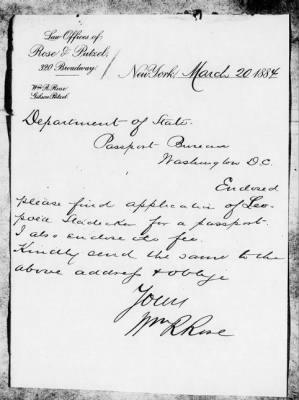 Law Offices of
Rose & Putzel,
320 Broadway,
New York, March 20 1884
Wm R. Rose
Gibson Putzel.
Department of State.
Passport Bureau
Washington D.C.
Enclosed
please find application of Leo-
pold Stadecker for a passport.
I also enclose its fee.
Kindly send the same to the
above address & oblige
Yours
Wm R Rose